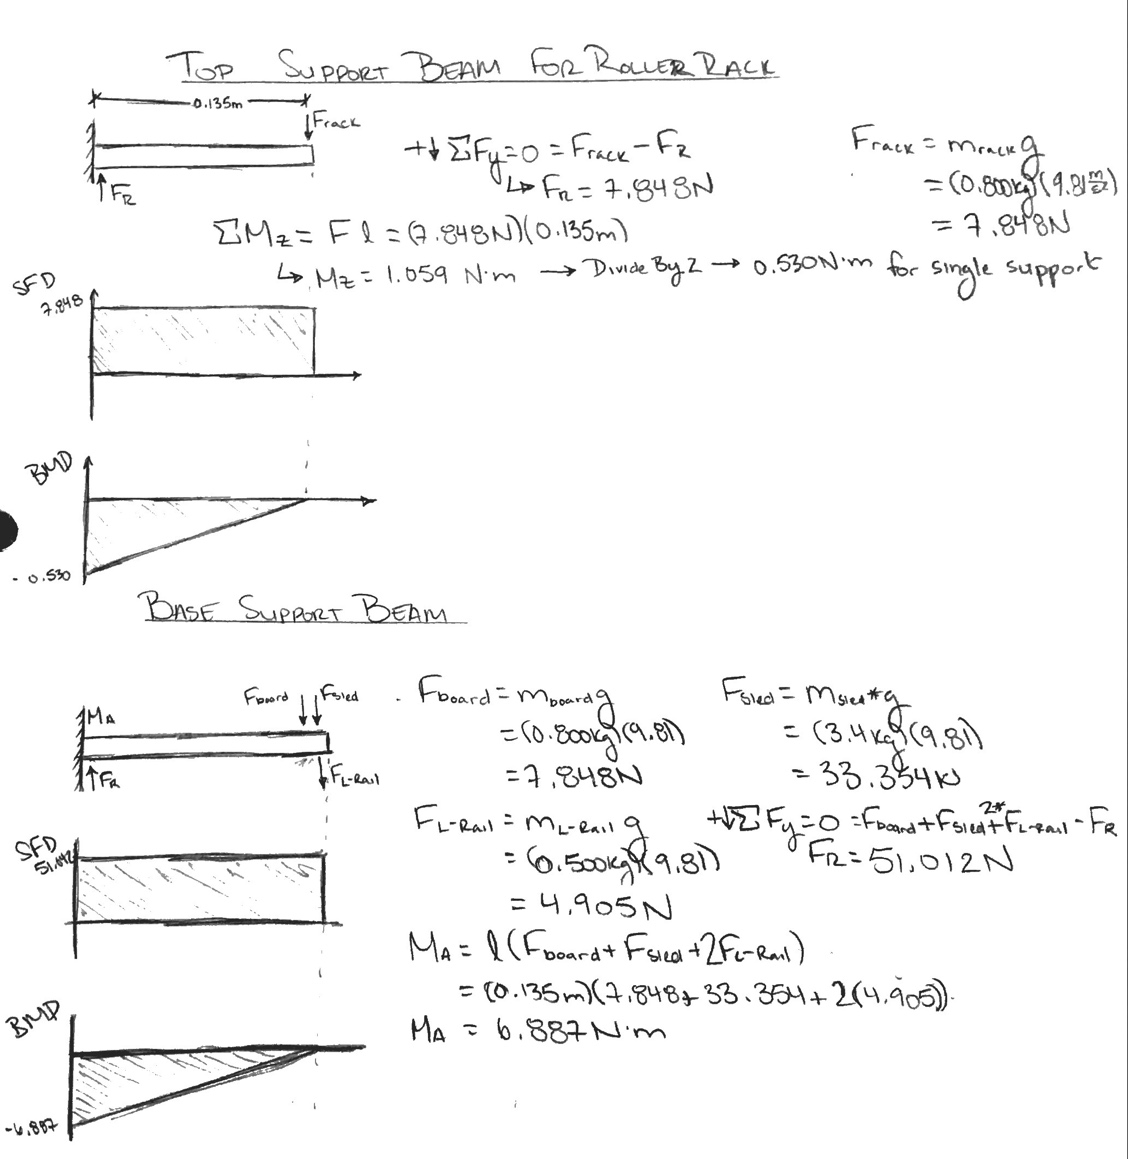 TOP SUPPORT BEAM FOR ROLLER RACK
0.135m
Frack
FR
+↓ ΣFy=0 = Frack - FR
↳ FR = 7.848N
Frack = mrack g
= (0.800kg)(9.81 m/s²)
= 7.848N
ΣMz = F l = (7.848N)(0.135m)
↳ Mz = 1.059 N·m → Divide By 2 → 0.530N·m for single support
SFD
7.848
BMD
- 0.530
BASE SUPPORT BEAM
Fboard Fsled
MA
FR
FL-Rail
Fboard = mboard g
= (0.800kg)(9.81)
= 7.848N
Fsled = msled*g
= (3.4kg)(9.81)
= 33.354N
FL-Rail = mL-Rail g
= (0.500kg)(9.81)
= 4.905N
+↓ΣFy=0 = Fboard + Fsled + 2* FL-Rail - FR
FR = 51.012N
SFD
51.012
MA = l(Fboard + Fsled + 2FL-Rail)
= (0.135m)(7.848 + 33.354 + 2(4.905))
MA = 6.887N·m
BMD
-6.887